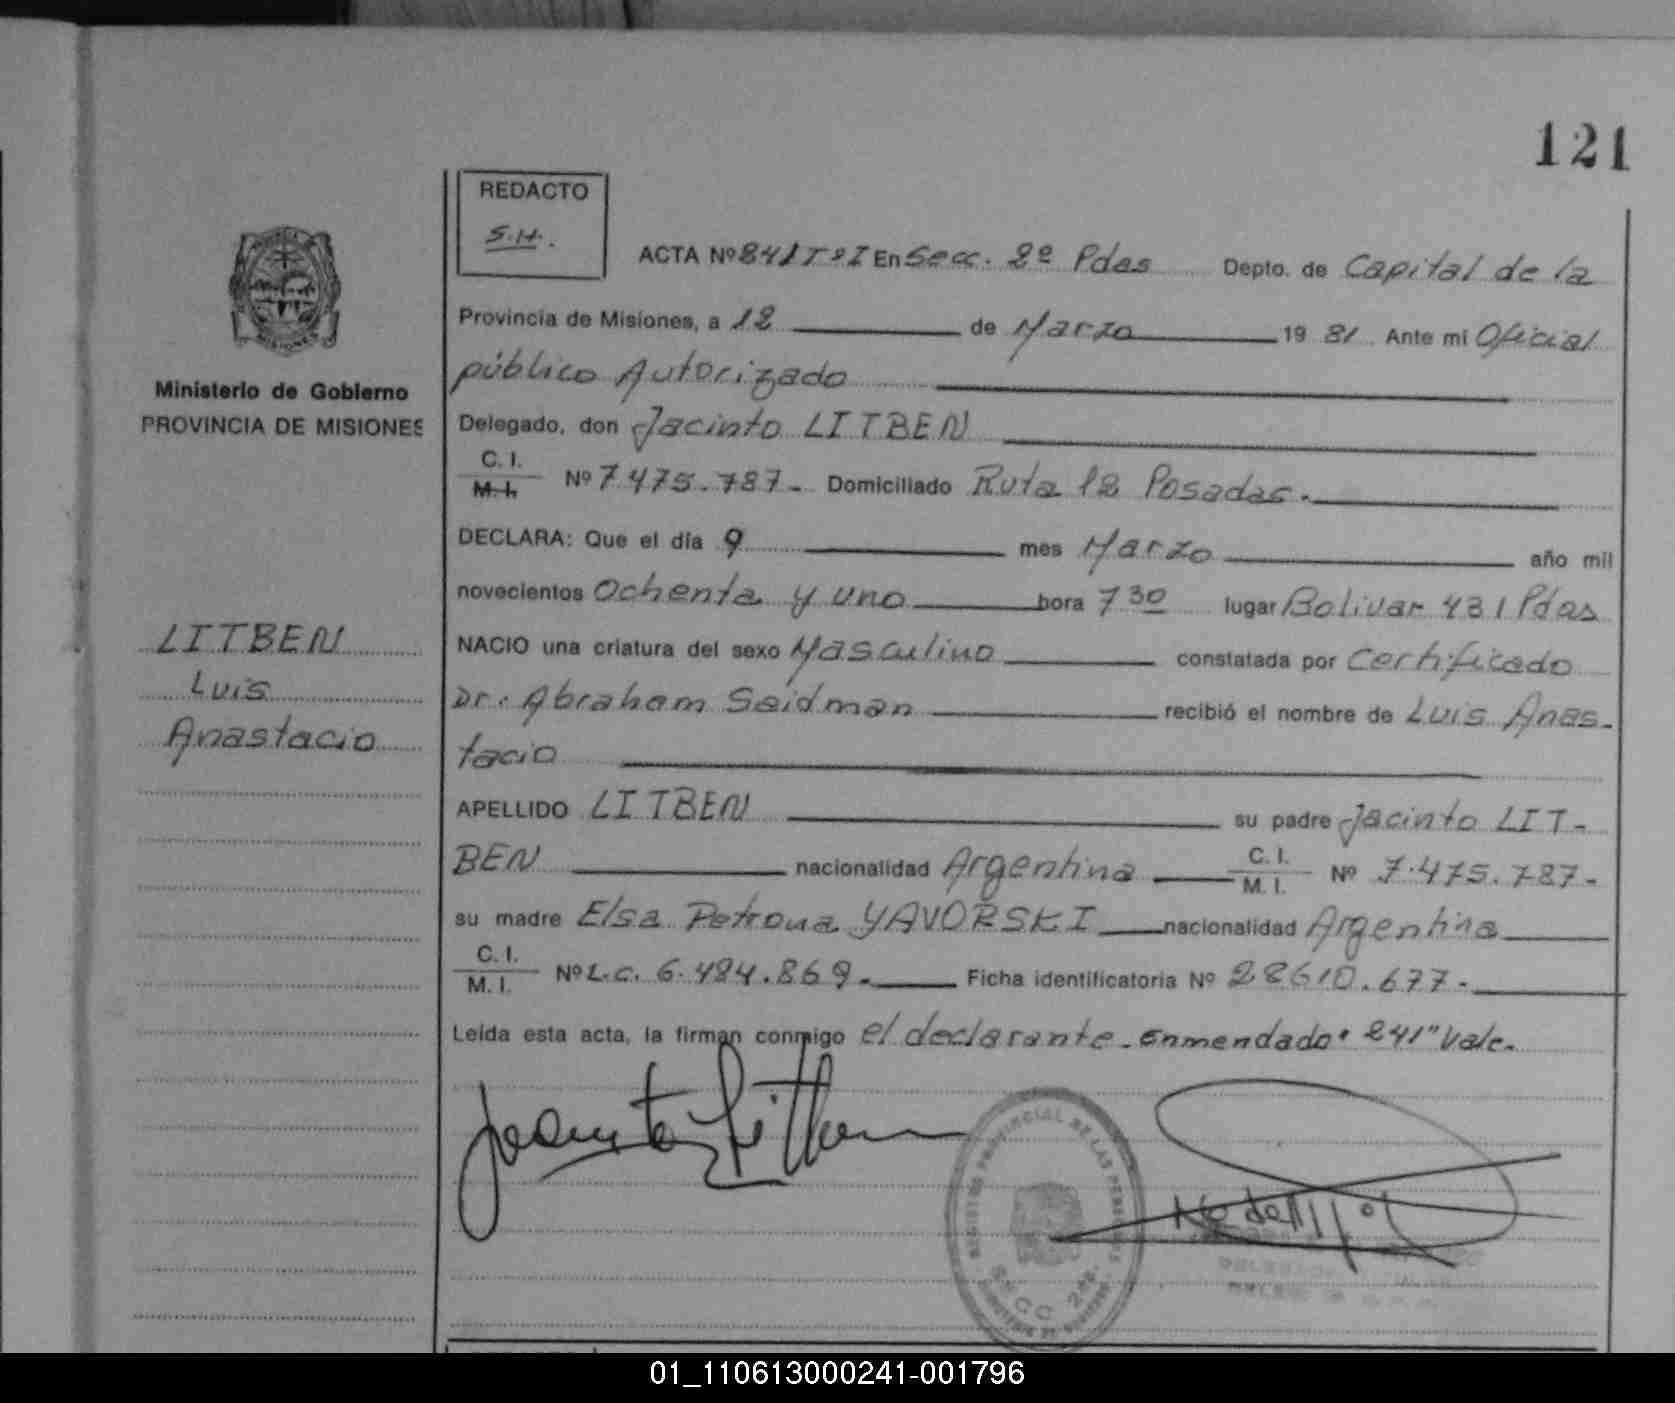 121
REDACTO
S.H.
ACTA Nº 841 Tº I En Secc. 2º Pdas Depto. de Capital de la
Provincia de Misiones, a 12 de Marzo 19 81 Ante mi Oficial
público Autorizado
Delegado, don Jacinto LITBEN
C. I.
M. I. Nº 7.475.787.- Domiciliado Ruta 12 Posadas.
DECLARA: Que el día 9 mes Marzo año mil
novecientos Ochenta y uno hora 7 30 lugar Bolivar 431 Pdas
NACIO una criatura del sexo Masculino constatada por Certificado
Dr. Abraham Seidman recibió el nombre de Luis Anas-
tacio
APELLIDO LITBEN su padre Jacinto LIT-
BEN nacionalidad Argentina C. I. M. I. Nº 7.475.787-
su madre Elsa Petrona YAVORSKI nacionalidad Argentina
C. I.
M. I. Nº L.C. 6.484.869.- Ficha identificatoria Nº 28610.677-
Leída esta acta, la firman conmigo el declarante. Enmendado "841" Vale.
Jacinto Litben
REGISTRO PROVINCIAL DE LAS PERSONAS
SECC 2da.
Ministerio de Gobierno
PROVINCIA DE MISIONES
LITBEN
Luis
Anastacio
01_110613000241-001796